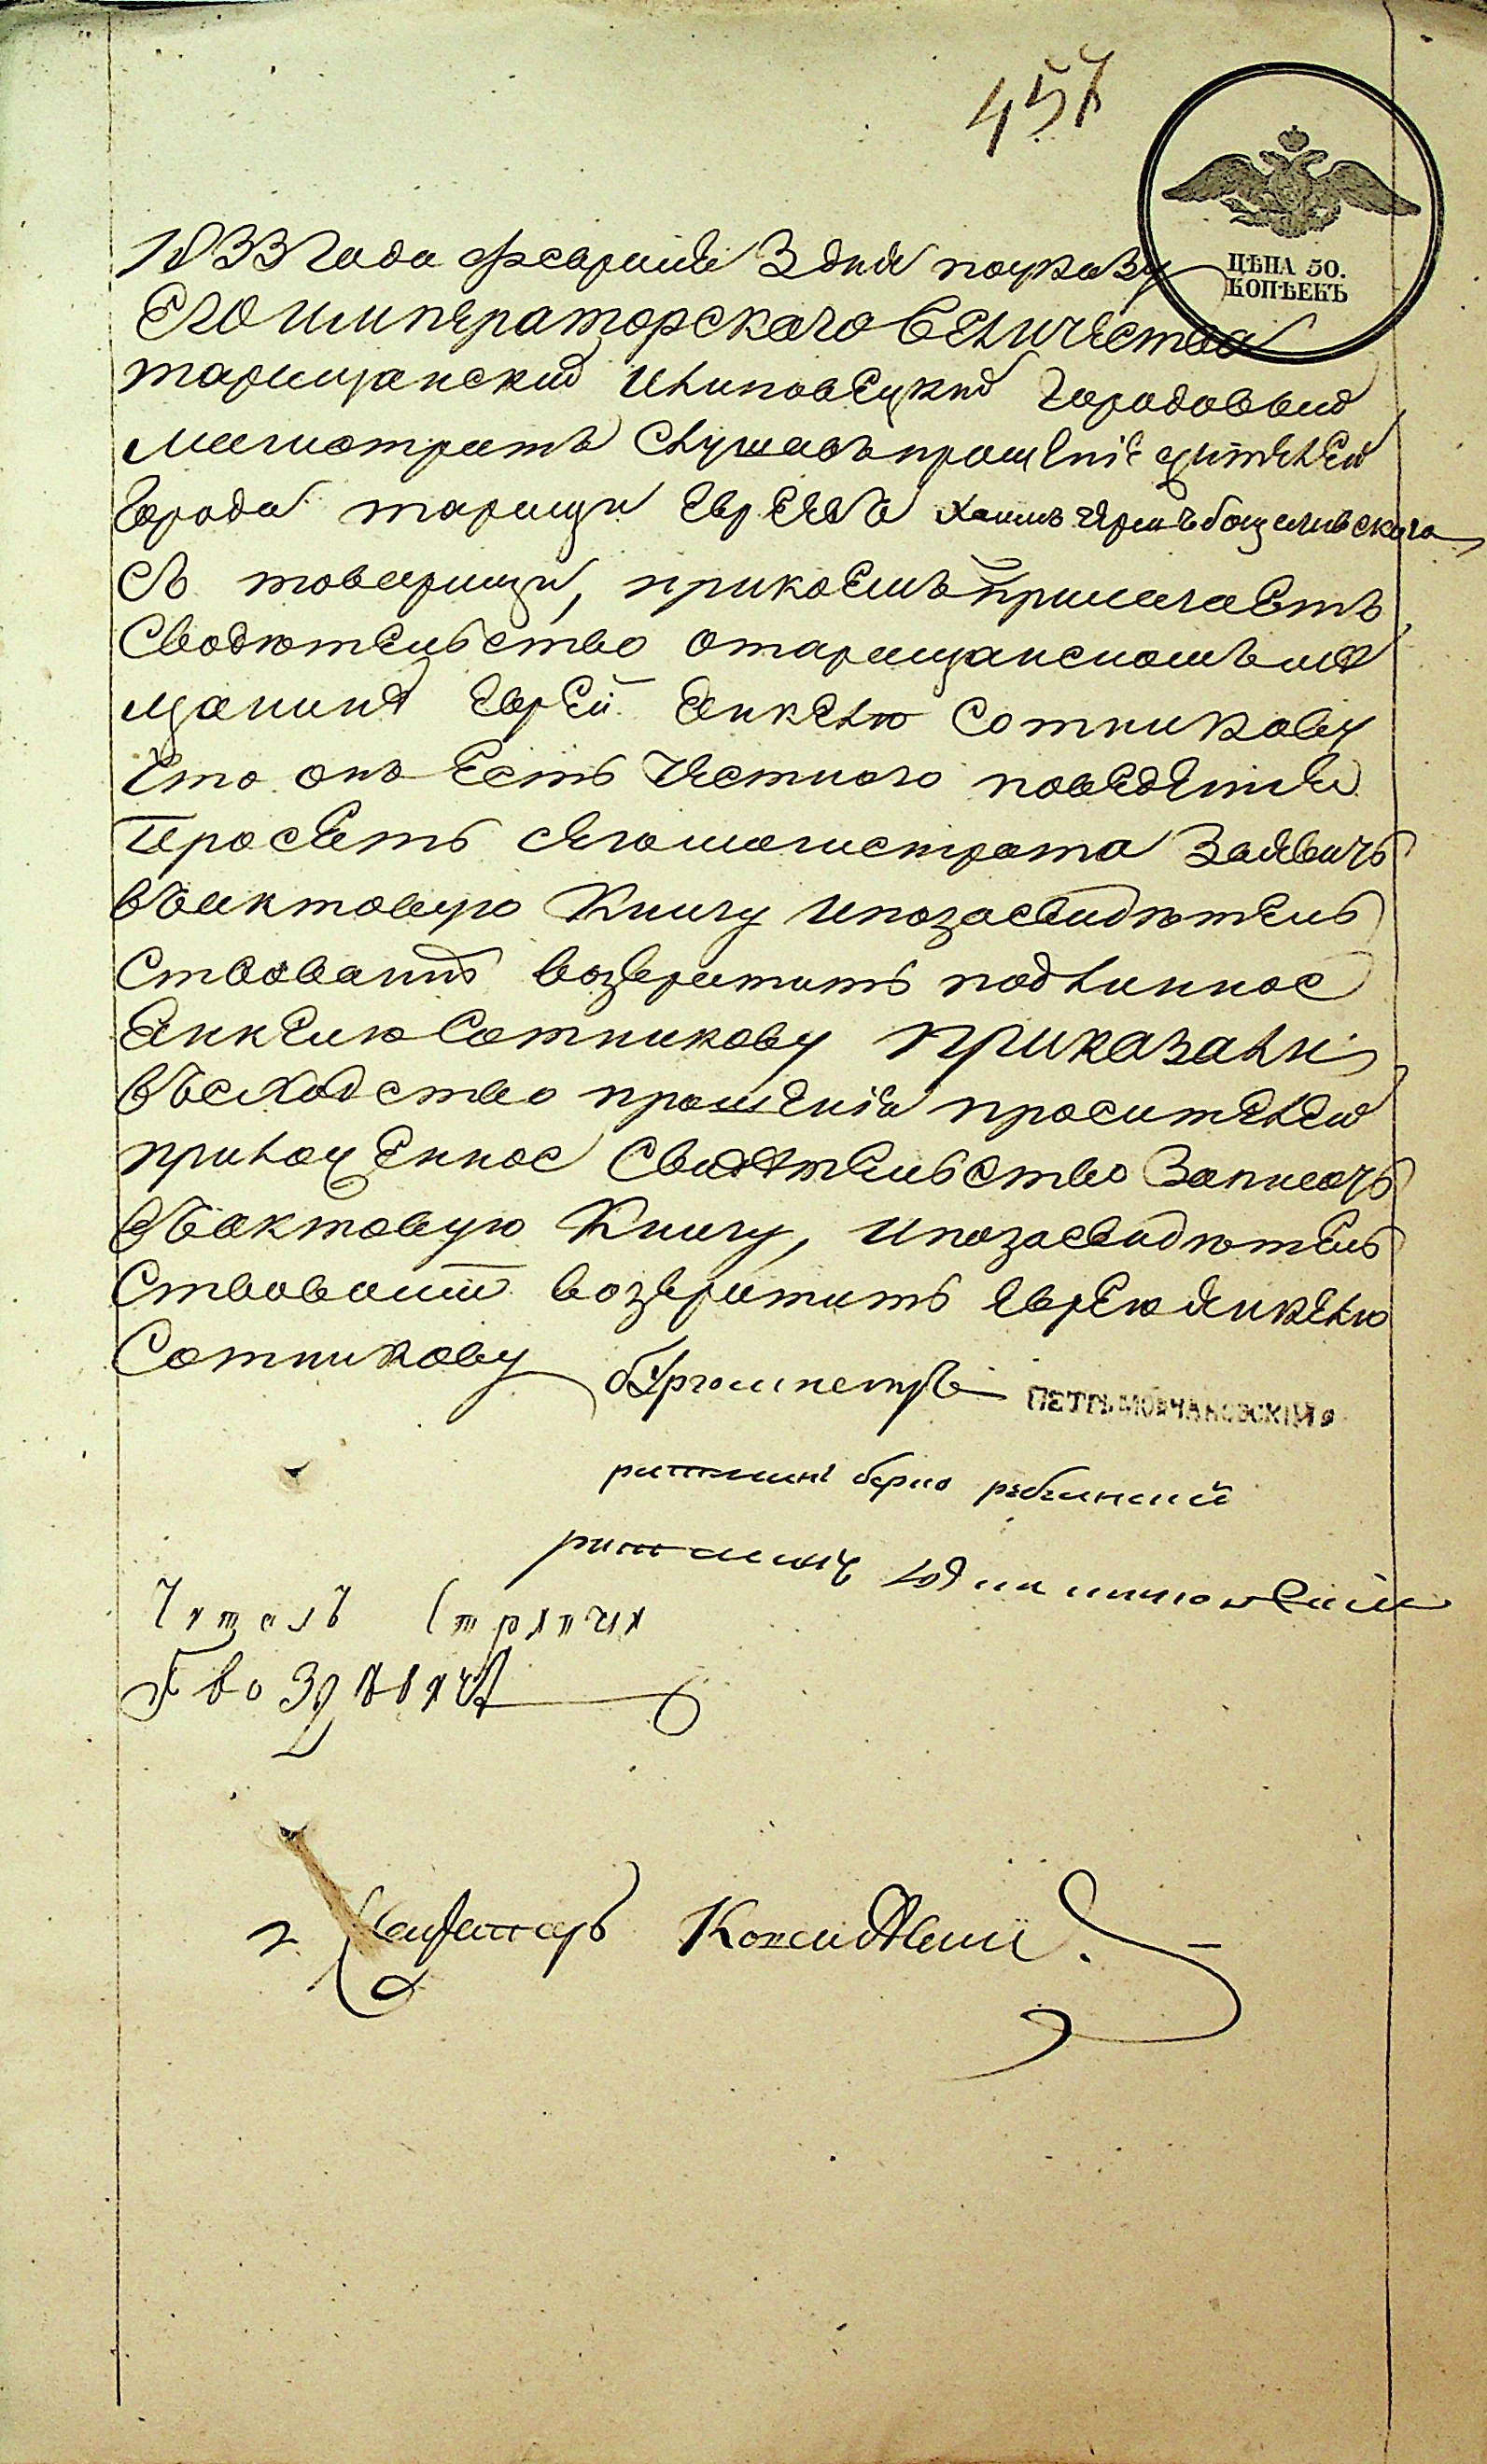 457
ЦѢНА 50.
КОПѢЕКЪ
1833 Года февраля 3 дня поуказу
Его императорскаго величества
таращанский илиповецкий Городовый
Магистратъ Слушавъ прошеніе жителей
Города таращи Евреевъ
Съ товарищи, прикоемъ прилагаетъ
Сводютельство отаращанскомъ ме
щанинѣ Еврей Янкелю Сотникову
Что онъ Есть Честного поведения
Просятъ сего магистрата Заявить
въактовую Книгу ипозасвидѣтель
ствованій возвратить подлинное
Янкелю Сотникову приказали
въсходство прошенія просителей
приложенное Свидѣтельство Записать
въактовую Книгу, ипозасвидѣтель
ствованіи возвратить Еврею Янкелю
Сотникову бургомистръ ПЕТРЪ МОВЧАНОВСКІЙ
ратманъ берко
ратманъ
Читалъ Стряпчи
Гвоздѣвичъ
Секретарь